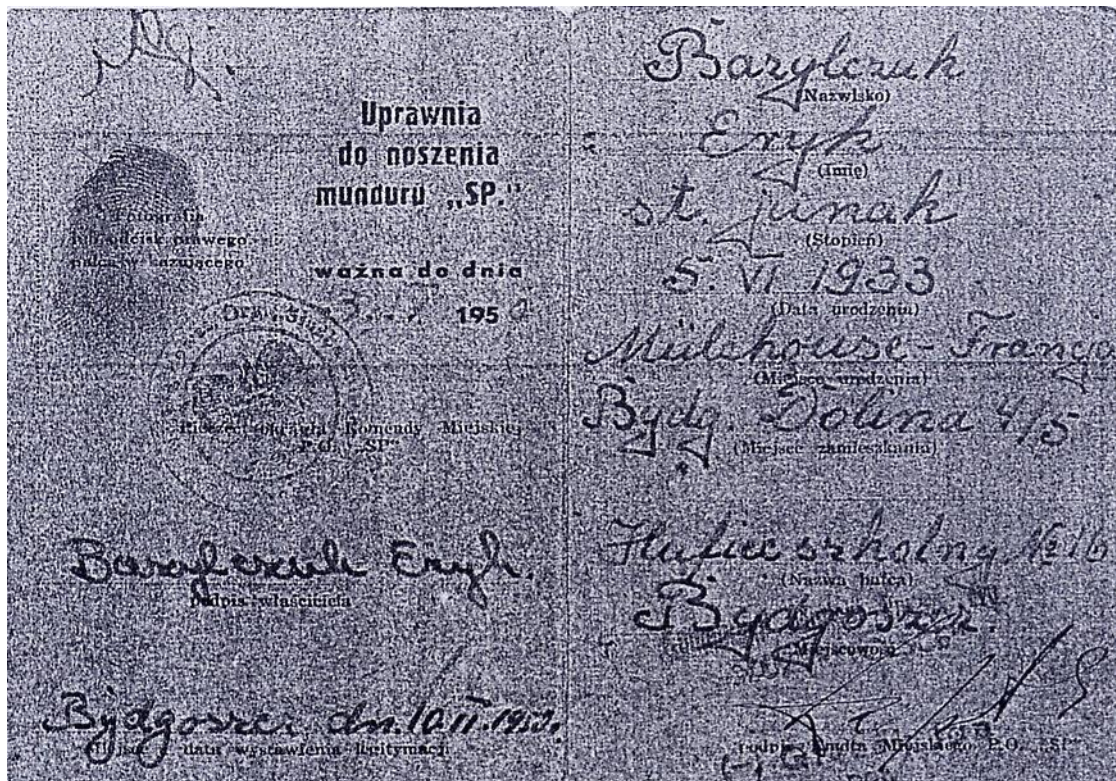 Uprawnia
do noszenia
munduru „SP."
Fotografia
lub odcisk prawego
palca wskazującego
ważna do dnia
1950
Pieczęć okrągła Komendy Miejskiej
P.O. „SP"
Barylczuk Eryk.
podpis właściciela
Bydgoszcz dn. 10.II.1950.
Miejsce data wystawienia legitymacji
Barylczuk
(Nazwisko)
Eryk
(Imię)
st. junak
(Stopień)
5. VI 1933
(Data urodzenia)
Mülehouse - Francja
(Miejsce urodzenia)
Bydg. Dolina 4/5
(Miejsce zamieszkania)
Hufiec szkolny № 16
(Nazwa hufca)
Bydgoszcz
Miejscowość
podpis Kmdta Miejskiego P.O. „SP"